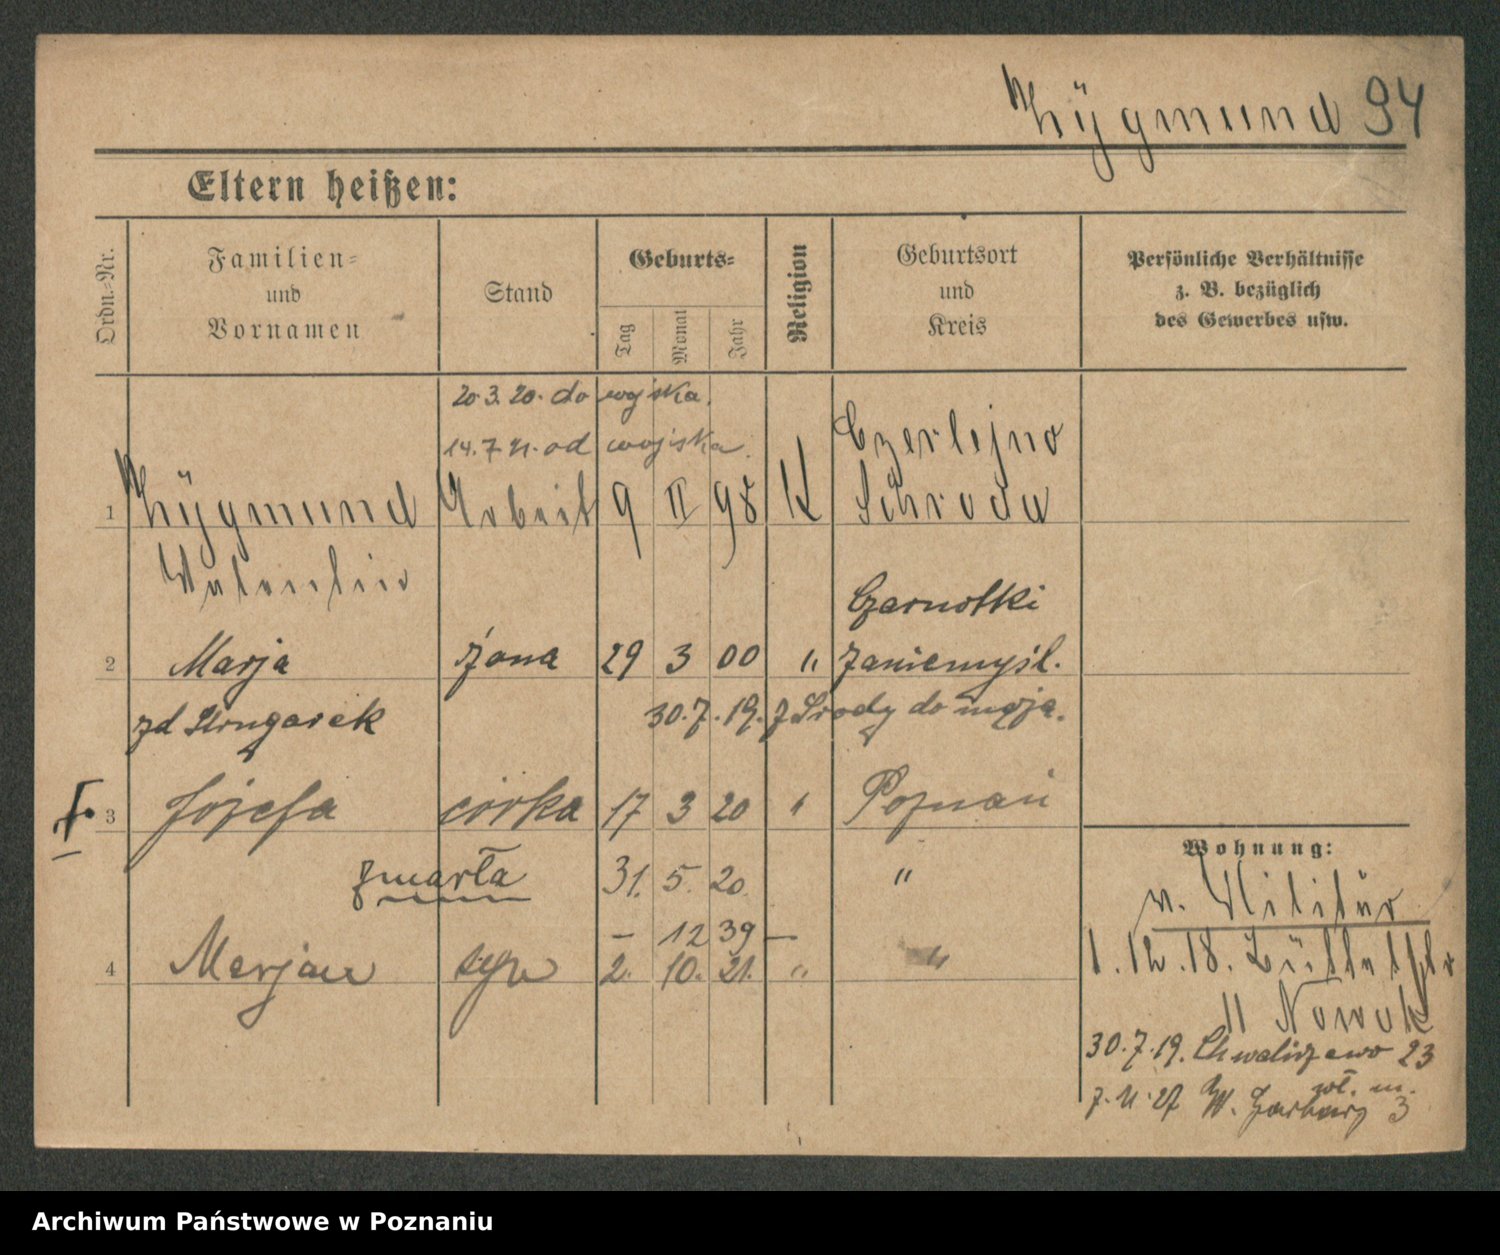 Zÿgmund 94
Eltern heißen:
Ordn.-Nr.
Familien-
und
Vornamen
Stand
Geburts-
Tag
Monat
Jahr
Religion
Geburtsort
und
Kreis
Persönliche Verhältnisse
z. B. bezüglich
des Gewerbes usw.
20.3.20. do wojska.
14.7.21. od wojska.
1 Zÿgmund Arbeit 9 II 98 K Czerlejno Schroda
Valentin
Czarnotki
2 Marja żona 29 3 00 " Zaniemyśl.
zd 30.7.19. z Środy do męża.
3 Józefa córka 17 3 20 " Poznań
zmarła 31. 5. 20. "
– 12 39 –
4 Marjan syn 2. 10. 21. " "
Wohnung:
v. Militär
1.12.18.
11 Nowak
30.7.19. Chwaliszewo 23
7.11.27 W. Garbary 3
Archiwum Państwowe w Poznaniu